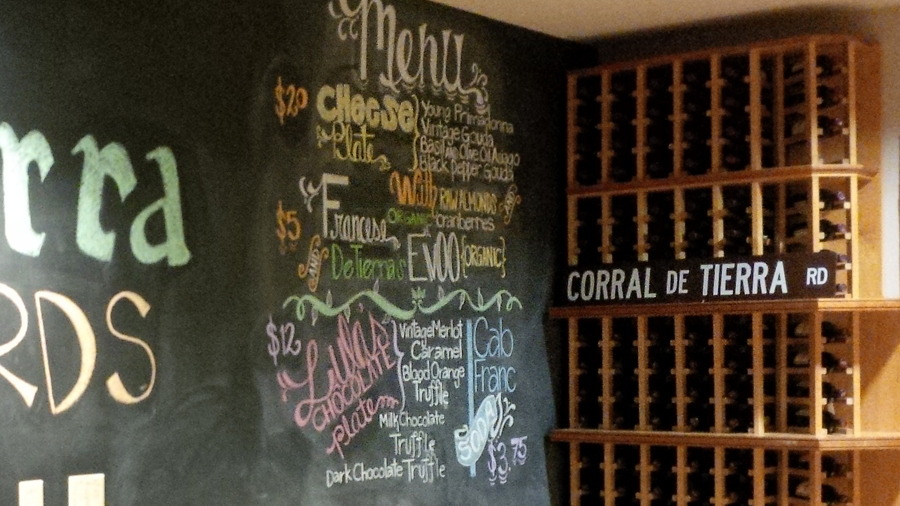 rra
RDS
Menu
$20 Cheese Plate
Young Primadonna
Vintage Gouda
Basil Olive Oil
Black pepper Gouda
With RAW ALMONDS
and
Organic cranberries
$5 Francese
AND DeTierra's EVOO {ORGANIC}
$12 Luna's CHOCOLATE Plate
Vintage Merlot
Caramel
Blood Orange
Truffle
Milk Chocolate
Truffle
Dark Chocolate Truffle
Cab
Franc
SODA
$3.75
CORRAL DE TIERRA RD